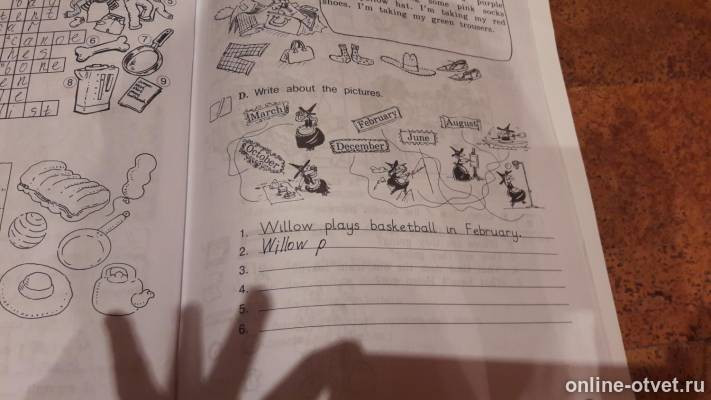 purple
some pink socks
hat. I'm taking my red
shoes. I'm taking my green trousers.
6
7
8
9
D. Write about the pictures.
March
February
August
June
December
October
1. Willow plays basketball in February.
2. Willow p
3.
4.
5.
6.
online-otvet.ru